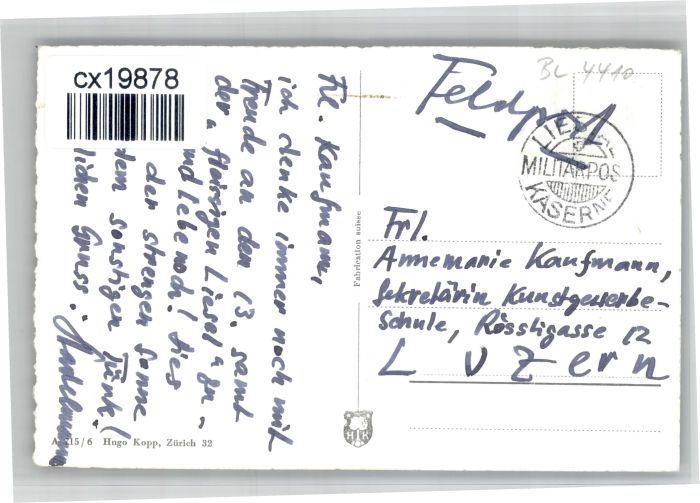 cx19878
BL 4410
Feldpost
LIESTAL
MILITÄRPOS
KASERNE
Frl. Kaufmann,
ich denke immer noch mit
Freude an den 13. samt
der flürrigen Liesel u gn
und Lebe noch! Dies
der strengen Sonne
dem sonstigen Tünk!
lichen Gruss.
Fabrication suisse
Frl.
Annemarie Kaufmann,
Sekretärin Kunstgewerbe-
Schule, Rössligasse 12
Luzern
HK
A 215/6 Hugo Kopp, Zürich 32